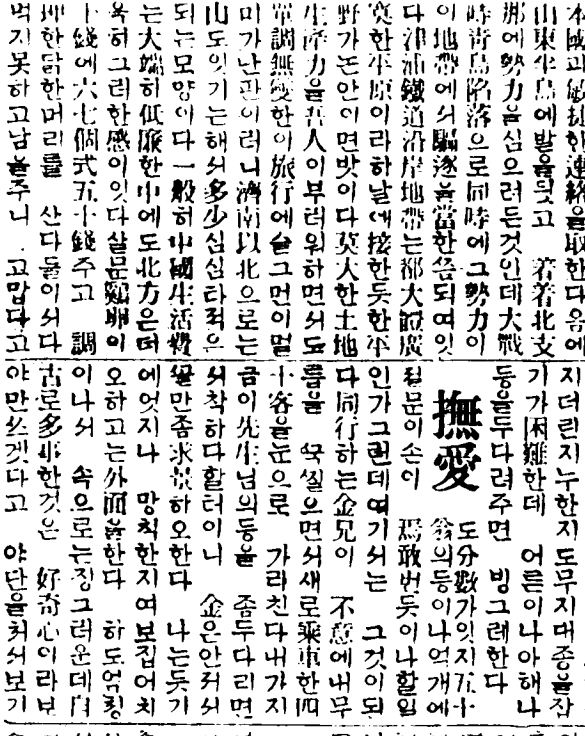 本國과敏捷한連絡을取한다음에
山東半島에발을듯고 着着北支
那에勢力을심으려든것인데大戰
時靑島陷落으로同時에그勢力이
이地帶에서驅逐을當한쯤되여잇
다津浦鐵道沿岸地帶는都大體廣
莫한平原이라하날에接한듯한平
野가논안이면밧이다莫大한土地
生産力을吾人이부러워하면서도
單調無變한이旅行에슬그먼이멀
미가난판이러니濟南以北으로는
山도잇기는해서多少심심타적은
되는모양이다一般히中國生活費
는大端히低廉한中에도北方은더
욱히그러한感이잇다살문鷄卵이
十錢에六七個式五十錢주고 調
理한닭한머리를 산다들이서다
먹지못하고남을주니 고맙다고
지더린지누한지도무지대종을잡
기가困難한데 어른이나아해나
등을두다려주면 빙그레한다
撫愛
도分數가잇지五十
翁의등이나억개에
젊문이손이 焉敢번듯이나할일
인가그런데여기서는 그것이되
다同行하는金兄이 不意에내무
릅을 쑥찔으면서새로乘車한四
十客을눈으로 가라친다내가지
금이先生님의등을 좀두다리면
서착하다할터이니 金은안저서
만좀求景하오한다 나는듯기
에엇지나 망칙한지여보집어치
오하고는外面을한다 하도엄칭
이나서 속으로는징그러운데自
古로多事한것은 好奇心이라보
야만쓰겟다고 야단을처서보기